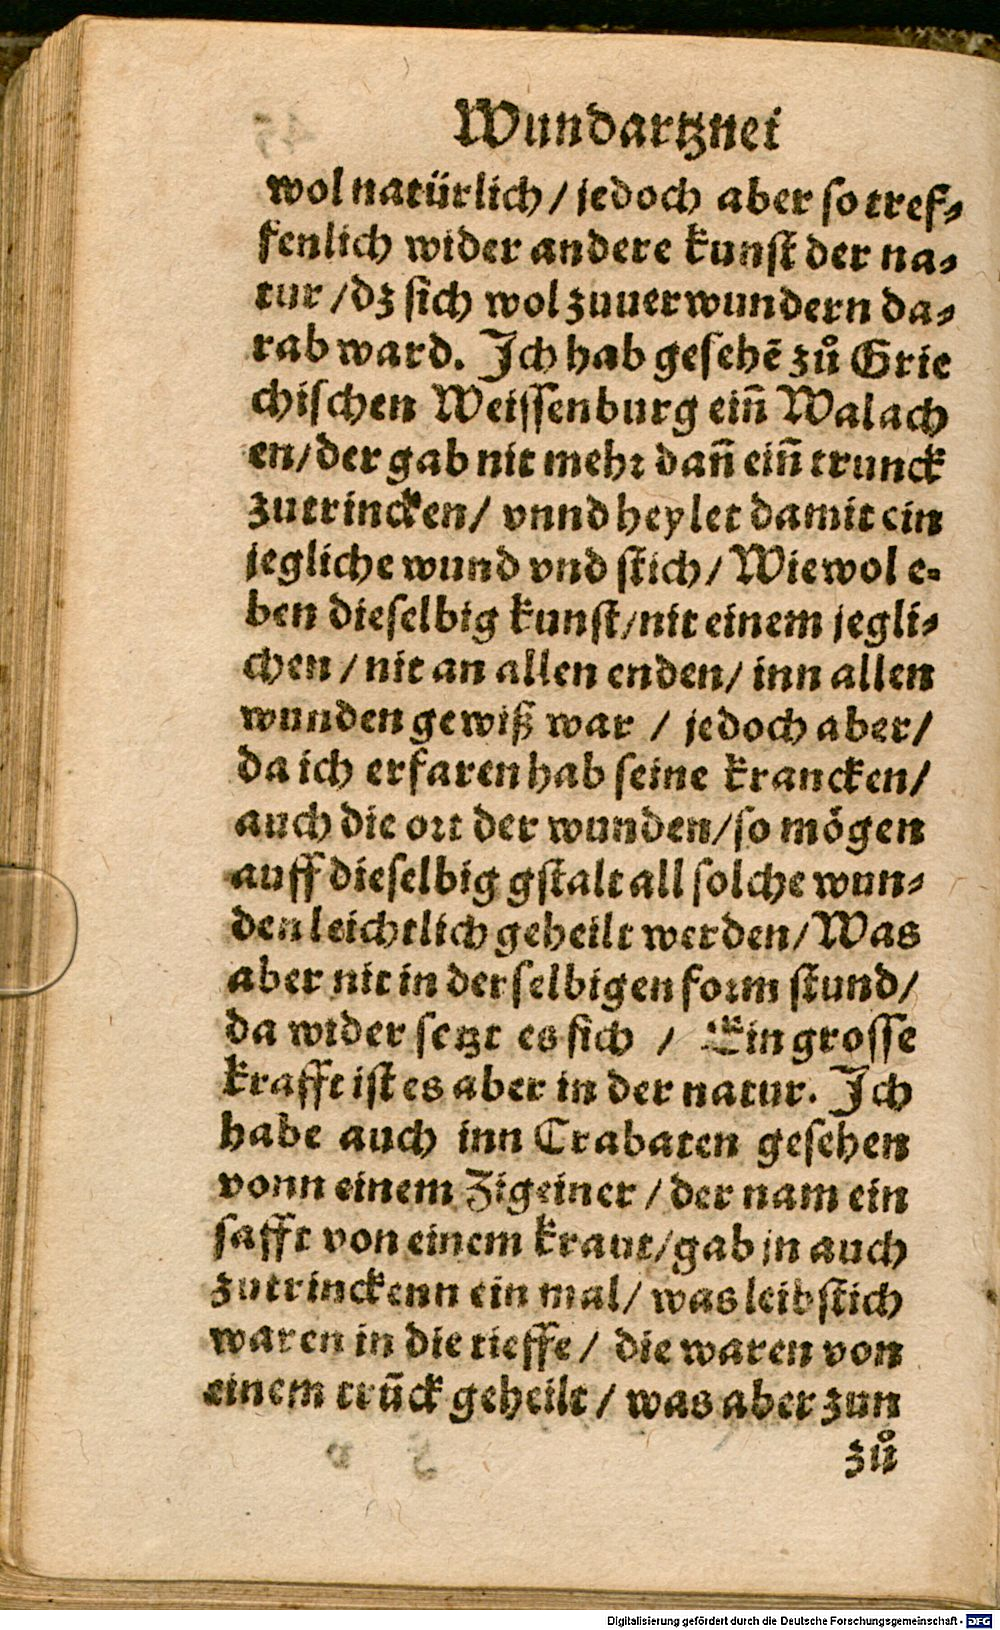 Wundartznei
wol natürlich / jedoch aber so tref⸗
fenlich wider andere kunst der na⸗
tur / dz sich wol zuuerwundern da⸗
rab ward. Ich hab gesehē zů Grie
chischen Weissenburg ein̄ Walach
en / der gab nit mehr dan̄ ein̄ trunck
zutrincken / vnnd heylet damit ein
jegliche wund vnd stich / Wiewol e⸗
ben dieselbig kunst / nit einem jegli⸗
chen / nit an allen enden / inn allen
wunden gewiß war / jedoch aber /
da ich erfaren hab seine krancken /
auch die ort der wunden / so mögen
auff dieselbig gstalt all solche wun⸗
den leichtlich geheilt werden / Was
aber nit in der selbigen form stund /
da wider setzt es sich / Ein grosse
krafft ist es aber in der natur. Ich
habe auch inn Crabaten gesehen
vonn einem Zigeiner / der nam ein
safft von einem kraut / gab jn auch
zutrinckenn ein mal / was leibstich
waren in die tieffe / die waren von
einem trūck geheilt / was aber zun
zů
Digitalisierung gefördert durch die Deutsche Forschungsgemeinschaft - DFG